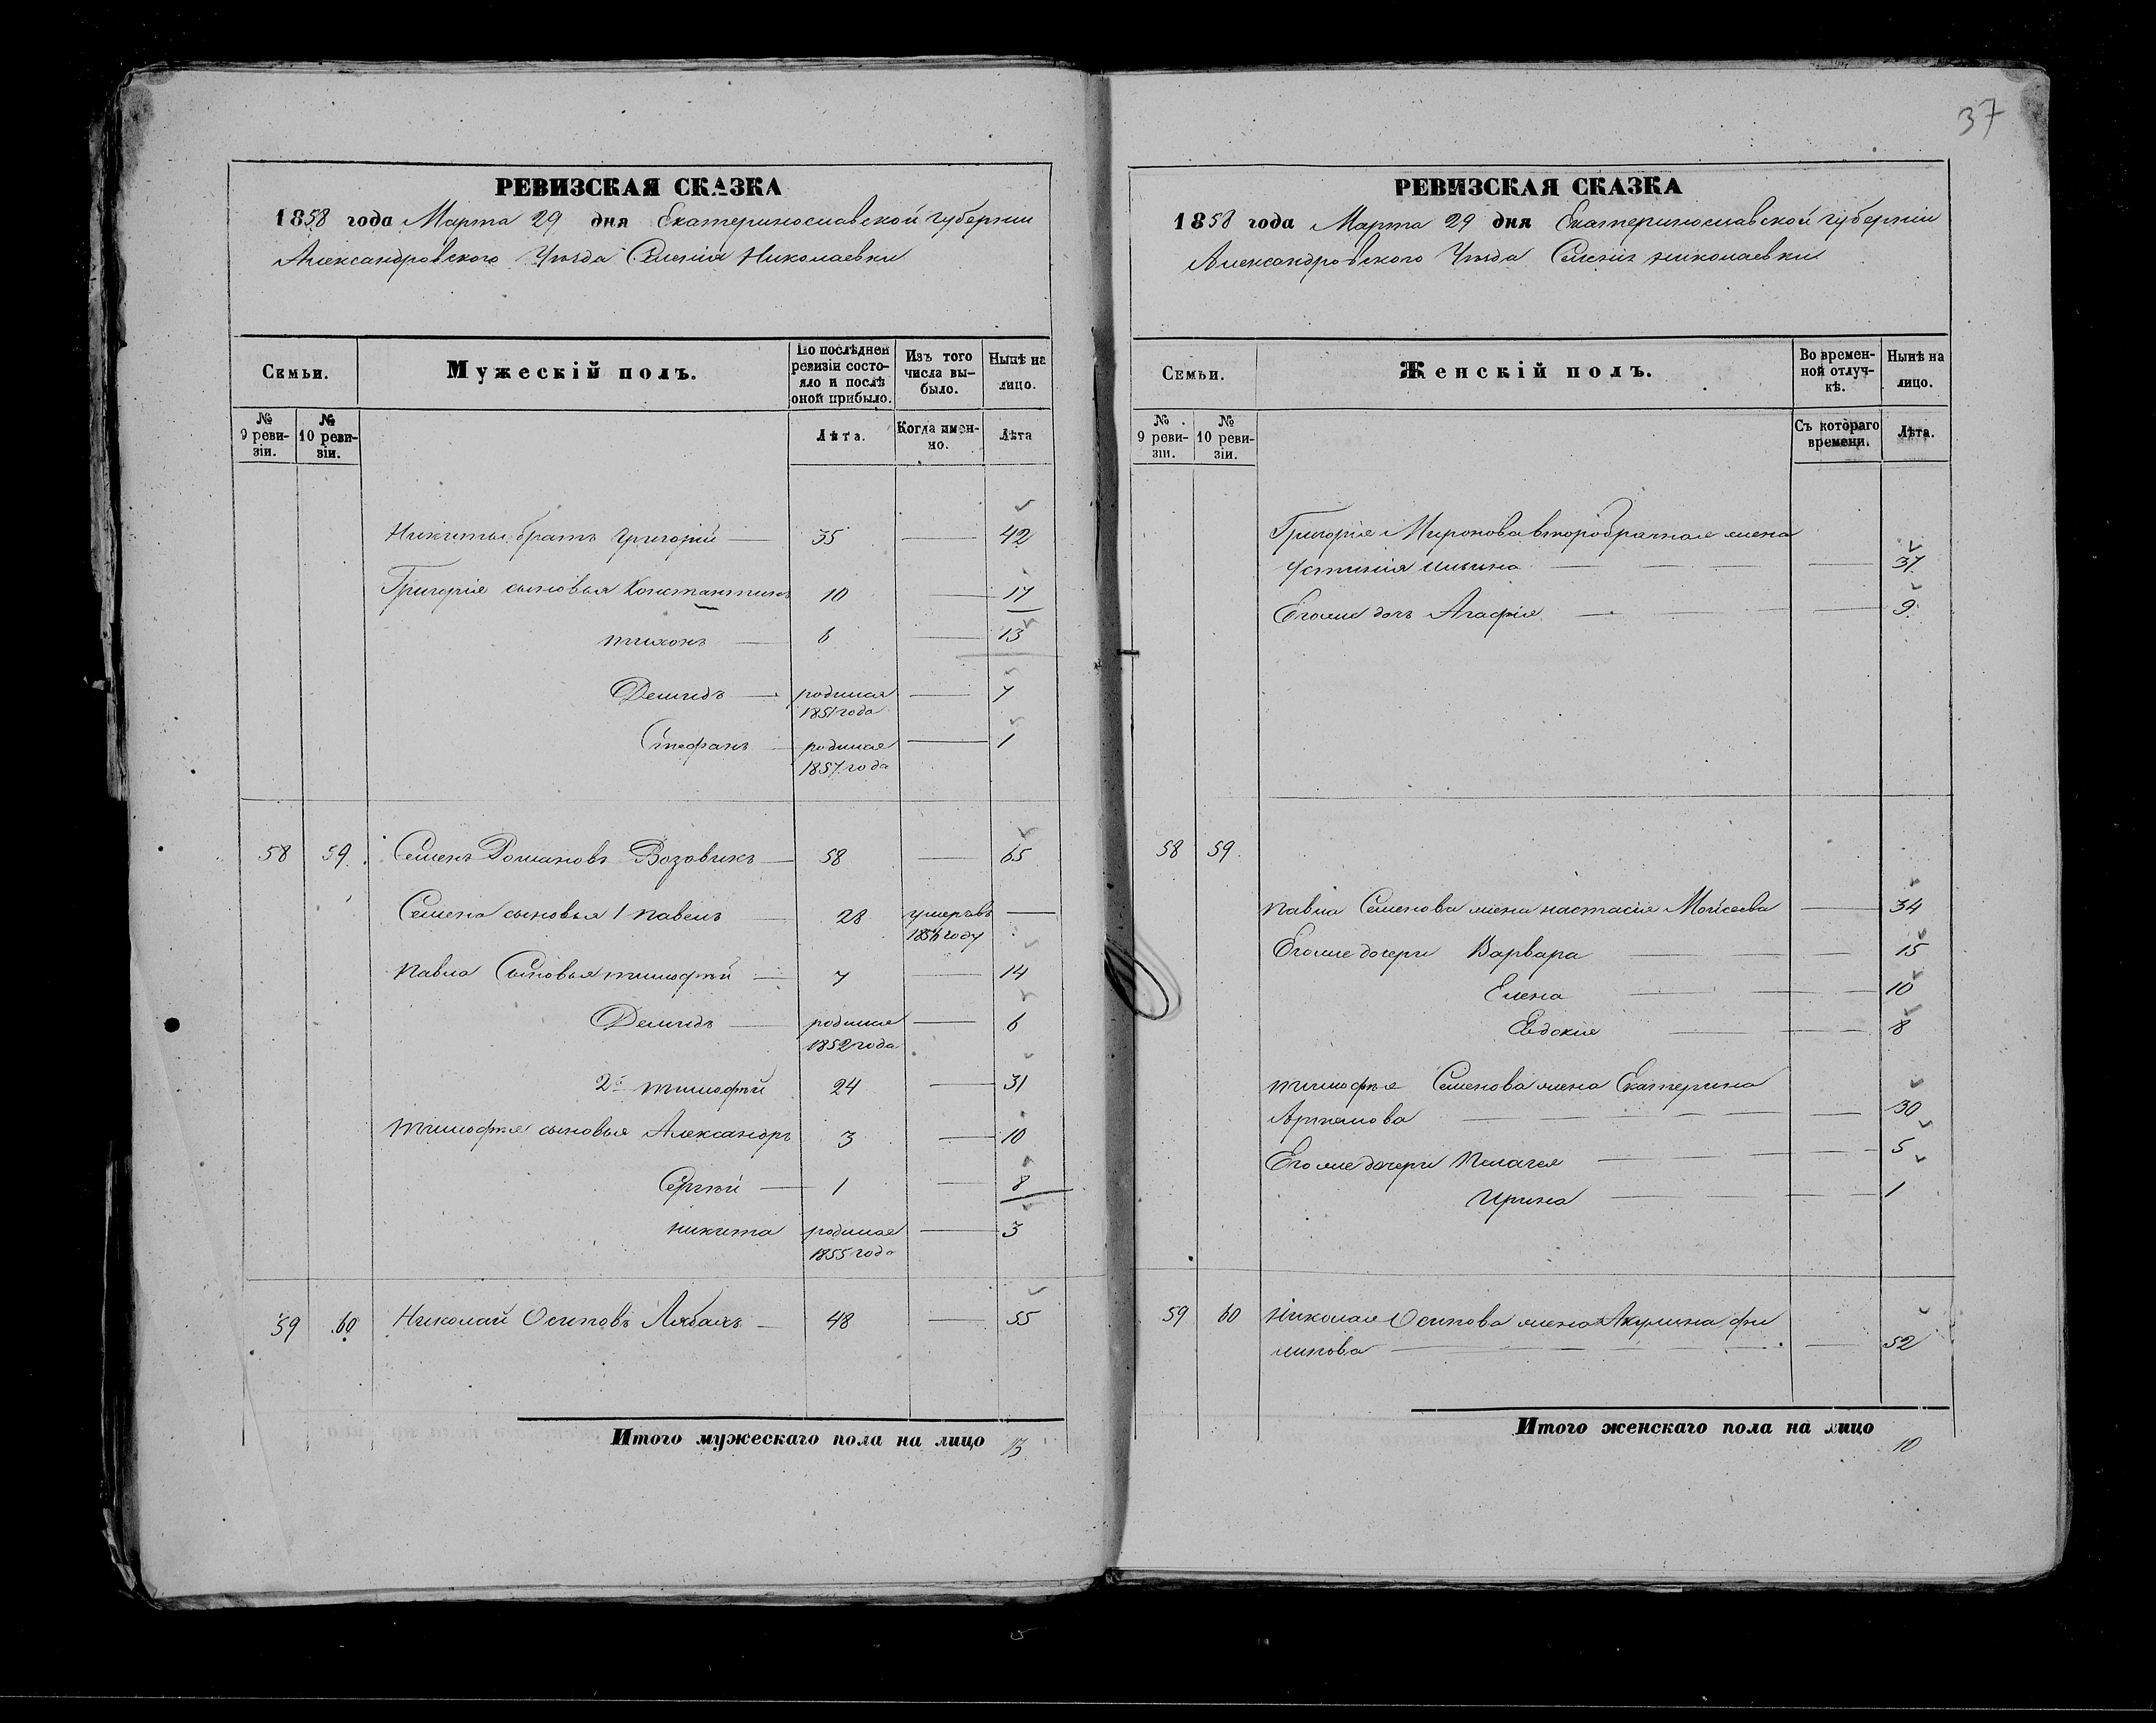 37
РЕВИЗСКАЯ СКАЗКА
1858 года Марта 29 дня Екатеринославской губернии
Александровского Уѣзда Селенія Николаевки
Семьи.
Мужескій полъ.
По послѣдней ревизіи состояло и послѣ оной прибыло.
Изъ того числа выбыло.
Нынѣ на лицо.
№ 9 ревизіи.
№ 10 ревизіи.
Лѣта.
Когда именно.
Лѣта
Никиты братъ Григорій — 35 — 42
Григорія сыновья Константинъ 10 — 17
тихонъ — 6 — 13
Демидъ — родился 1851 года — 7
Стефанъ — родился 1857 года — 1
58 59. Семенъ Романовъ Возовикъ — 58 — 65
Семена сыновья 1 павелъ — 28 умеръ въ году —
павла Сыновья тимофѣй — 7 — 14
Демидъ — родился 1852 года — 6
2й тимофѣй 24 — 31
тимофѣя сыновья Александръ 3 — 10
Сергѣй — 1 — 8
никита родился 1855 года — 3
59 60 Николай Осиповъ — 48 — 55
Итого мужескаго пола на лицо 13
РЕВИЗСКАЯ СКАЗКА
1858 года Марта 29 дня Екатеринославской губерніи
Александровского Уѣзда Селенія николаевки
Семьи.
Женскій полъ.
Во временной отлучкѣ.
Нынѣ на лицо.
№ 9 ревизіи.
№ 10 ревизіи.
Съ котораго времени.
Лѣта.
Григорія Миронова второбрачная жена
Устинія Ильина — 37
Егоже дочь Агафія — 9
58 59.
павла Семенова жена настасія Моисеева — 34
Егоже дочери Варвара — 15
Елена — 10
Евдокія — 8
тимофѣя Семенова жена Екатерина
Артемова — 30
Егоже дочери пелагея — 5
Ирина — 1
59 60 николая Осипова жена Акулина фи
липова — 52
Итого женскаго пола на лицо 10